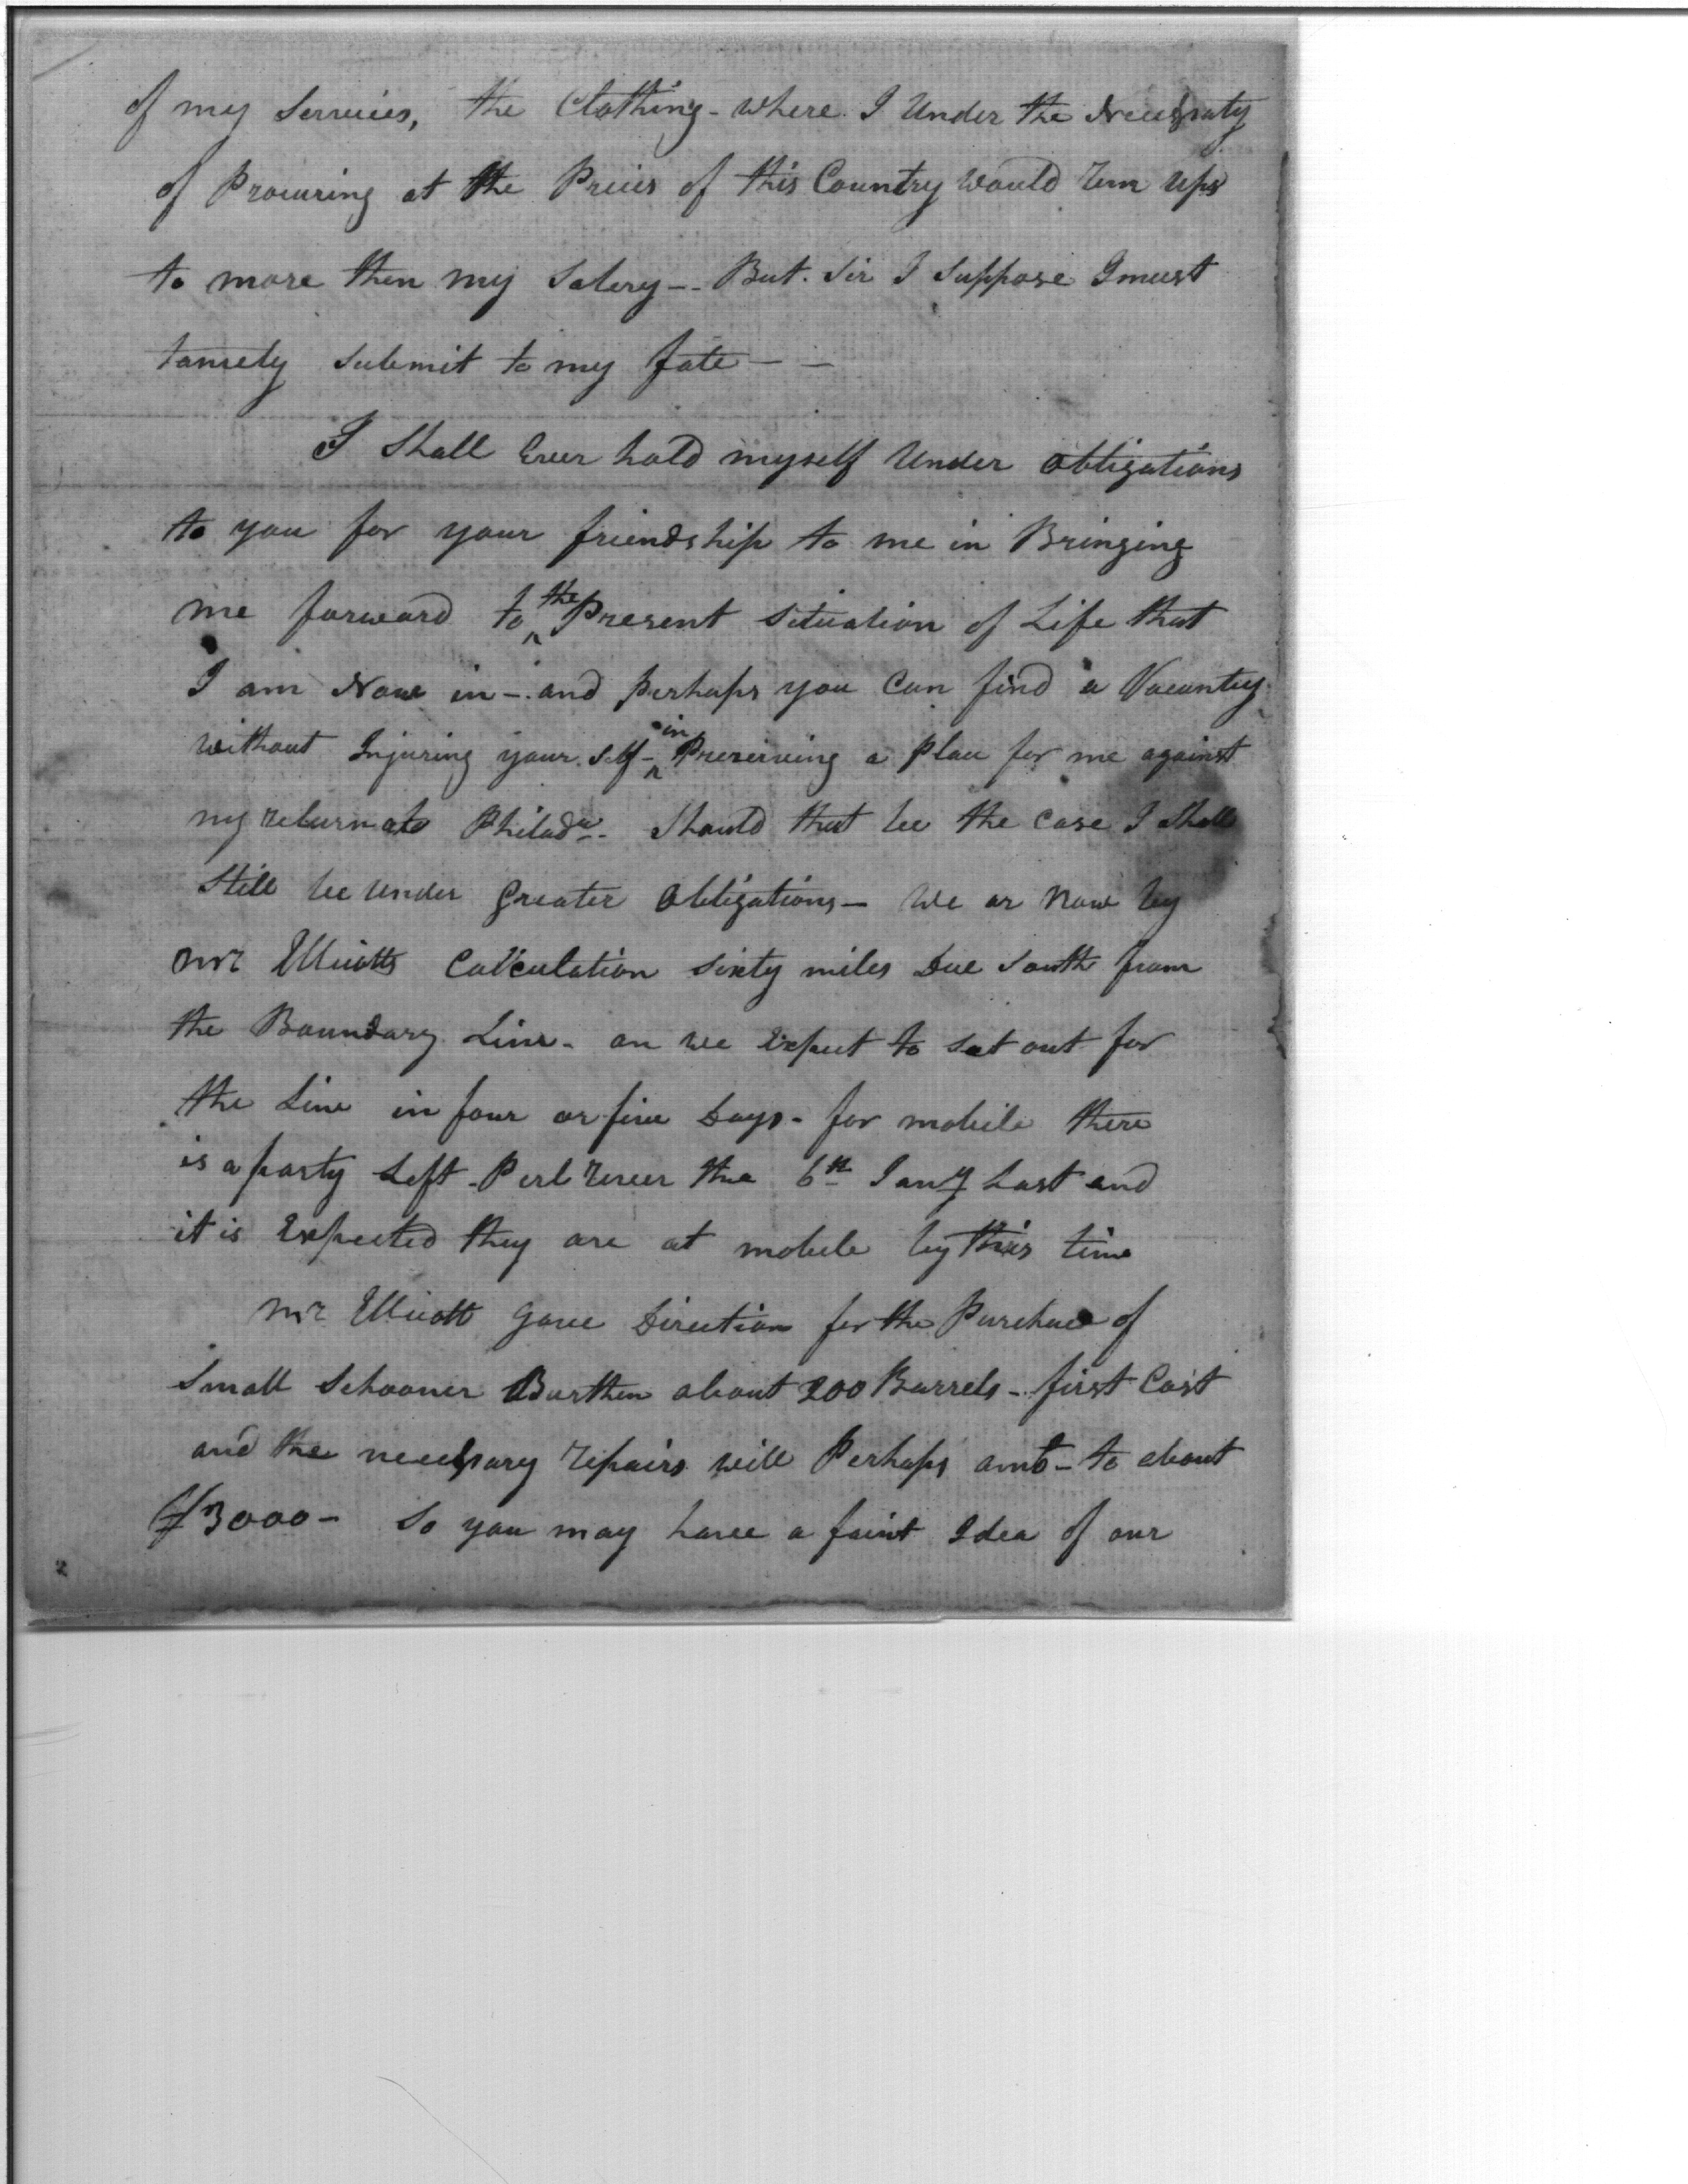 of my Services, the Clothing - where I Under the Necessaty
of Procuring at the Prices of this Country would run ups
to more then my Salery -- But. Sir I suppose I must
tamely submit to my fate - -
I Shall Ever hold myself Under obligations
to you for your friendship to me in Bringing
me forward to the Present Situation of Life that
I am Now in - and perhaps you Can find a Vacantcy
without Injuring your Self - in Preserving a place for me against
my return to Philada. Should that be the Case I Shall
Still be under Greater Obligations - We ar now by
Mr Ellicotts Calculation sixty miles Due South from
the Boundary Line - an we Expect to set out for
the Line in four or five Days - for mobile there
is a party Left Perl River the 6th Jany Last and
it is Expected they are at mobile by this time
Mr Ellicott gave Direction for the Purchace of
Small Schooner Burthen about 200 Barrels - first Cost
and the necessary repairs will Perhaps amt - to about
$3000 - So you may have a faint Idea of our
2